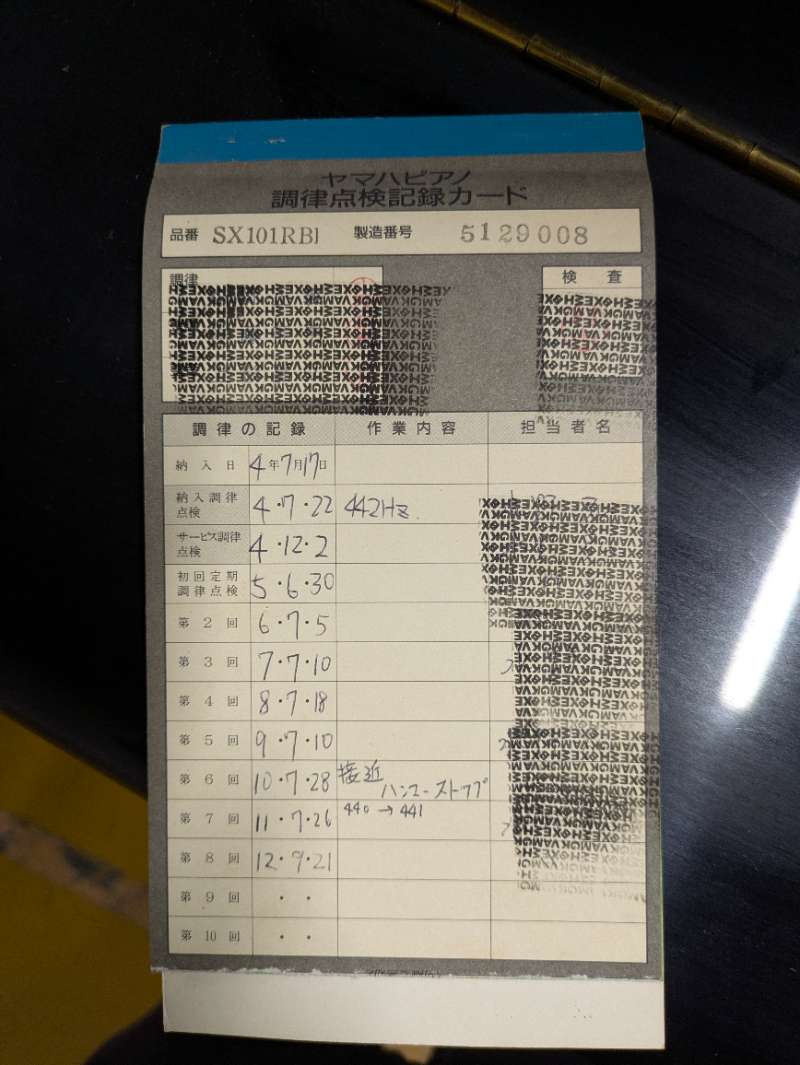 ヤマハピアノ
調律点検記録カード
品番 SX101RBl 製造番号 5129008
調律 検査
調律の記録 作業内容 担当者名
納入日 4年7月17日
納入調律点検 4・7・22 442Hz.
サービス調律点検 4・12・2
初回定期調律点検 5・6・30
第2回 6・7・5
第3回 7・7・10
第4回 8・7・18
第5回 9・7・10
第6回 10・7・28 接近 ハンマーストップ
第7回 11・7・26 440→441
第8回 12・9・21
第9回 ・・
第10回 ・・